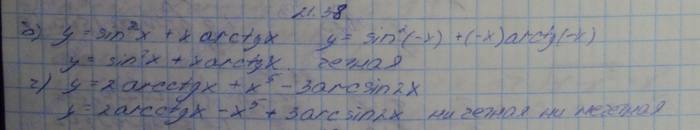 21.58
б) y = sin²x + x arctgx y = sin²(-x) + (-x)arctg(-x)
y = sin²x + x arctgx. четная
г) y = 2arcctgx + x⁵ - 3arcsin2x
y = 2arcctgx - x⁵ + 3arcsin2x ни четная ни нечетная